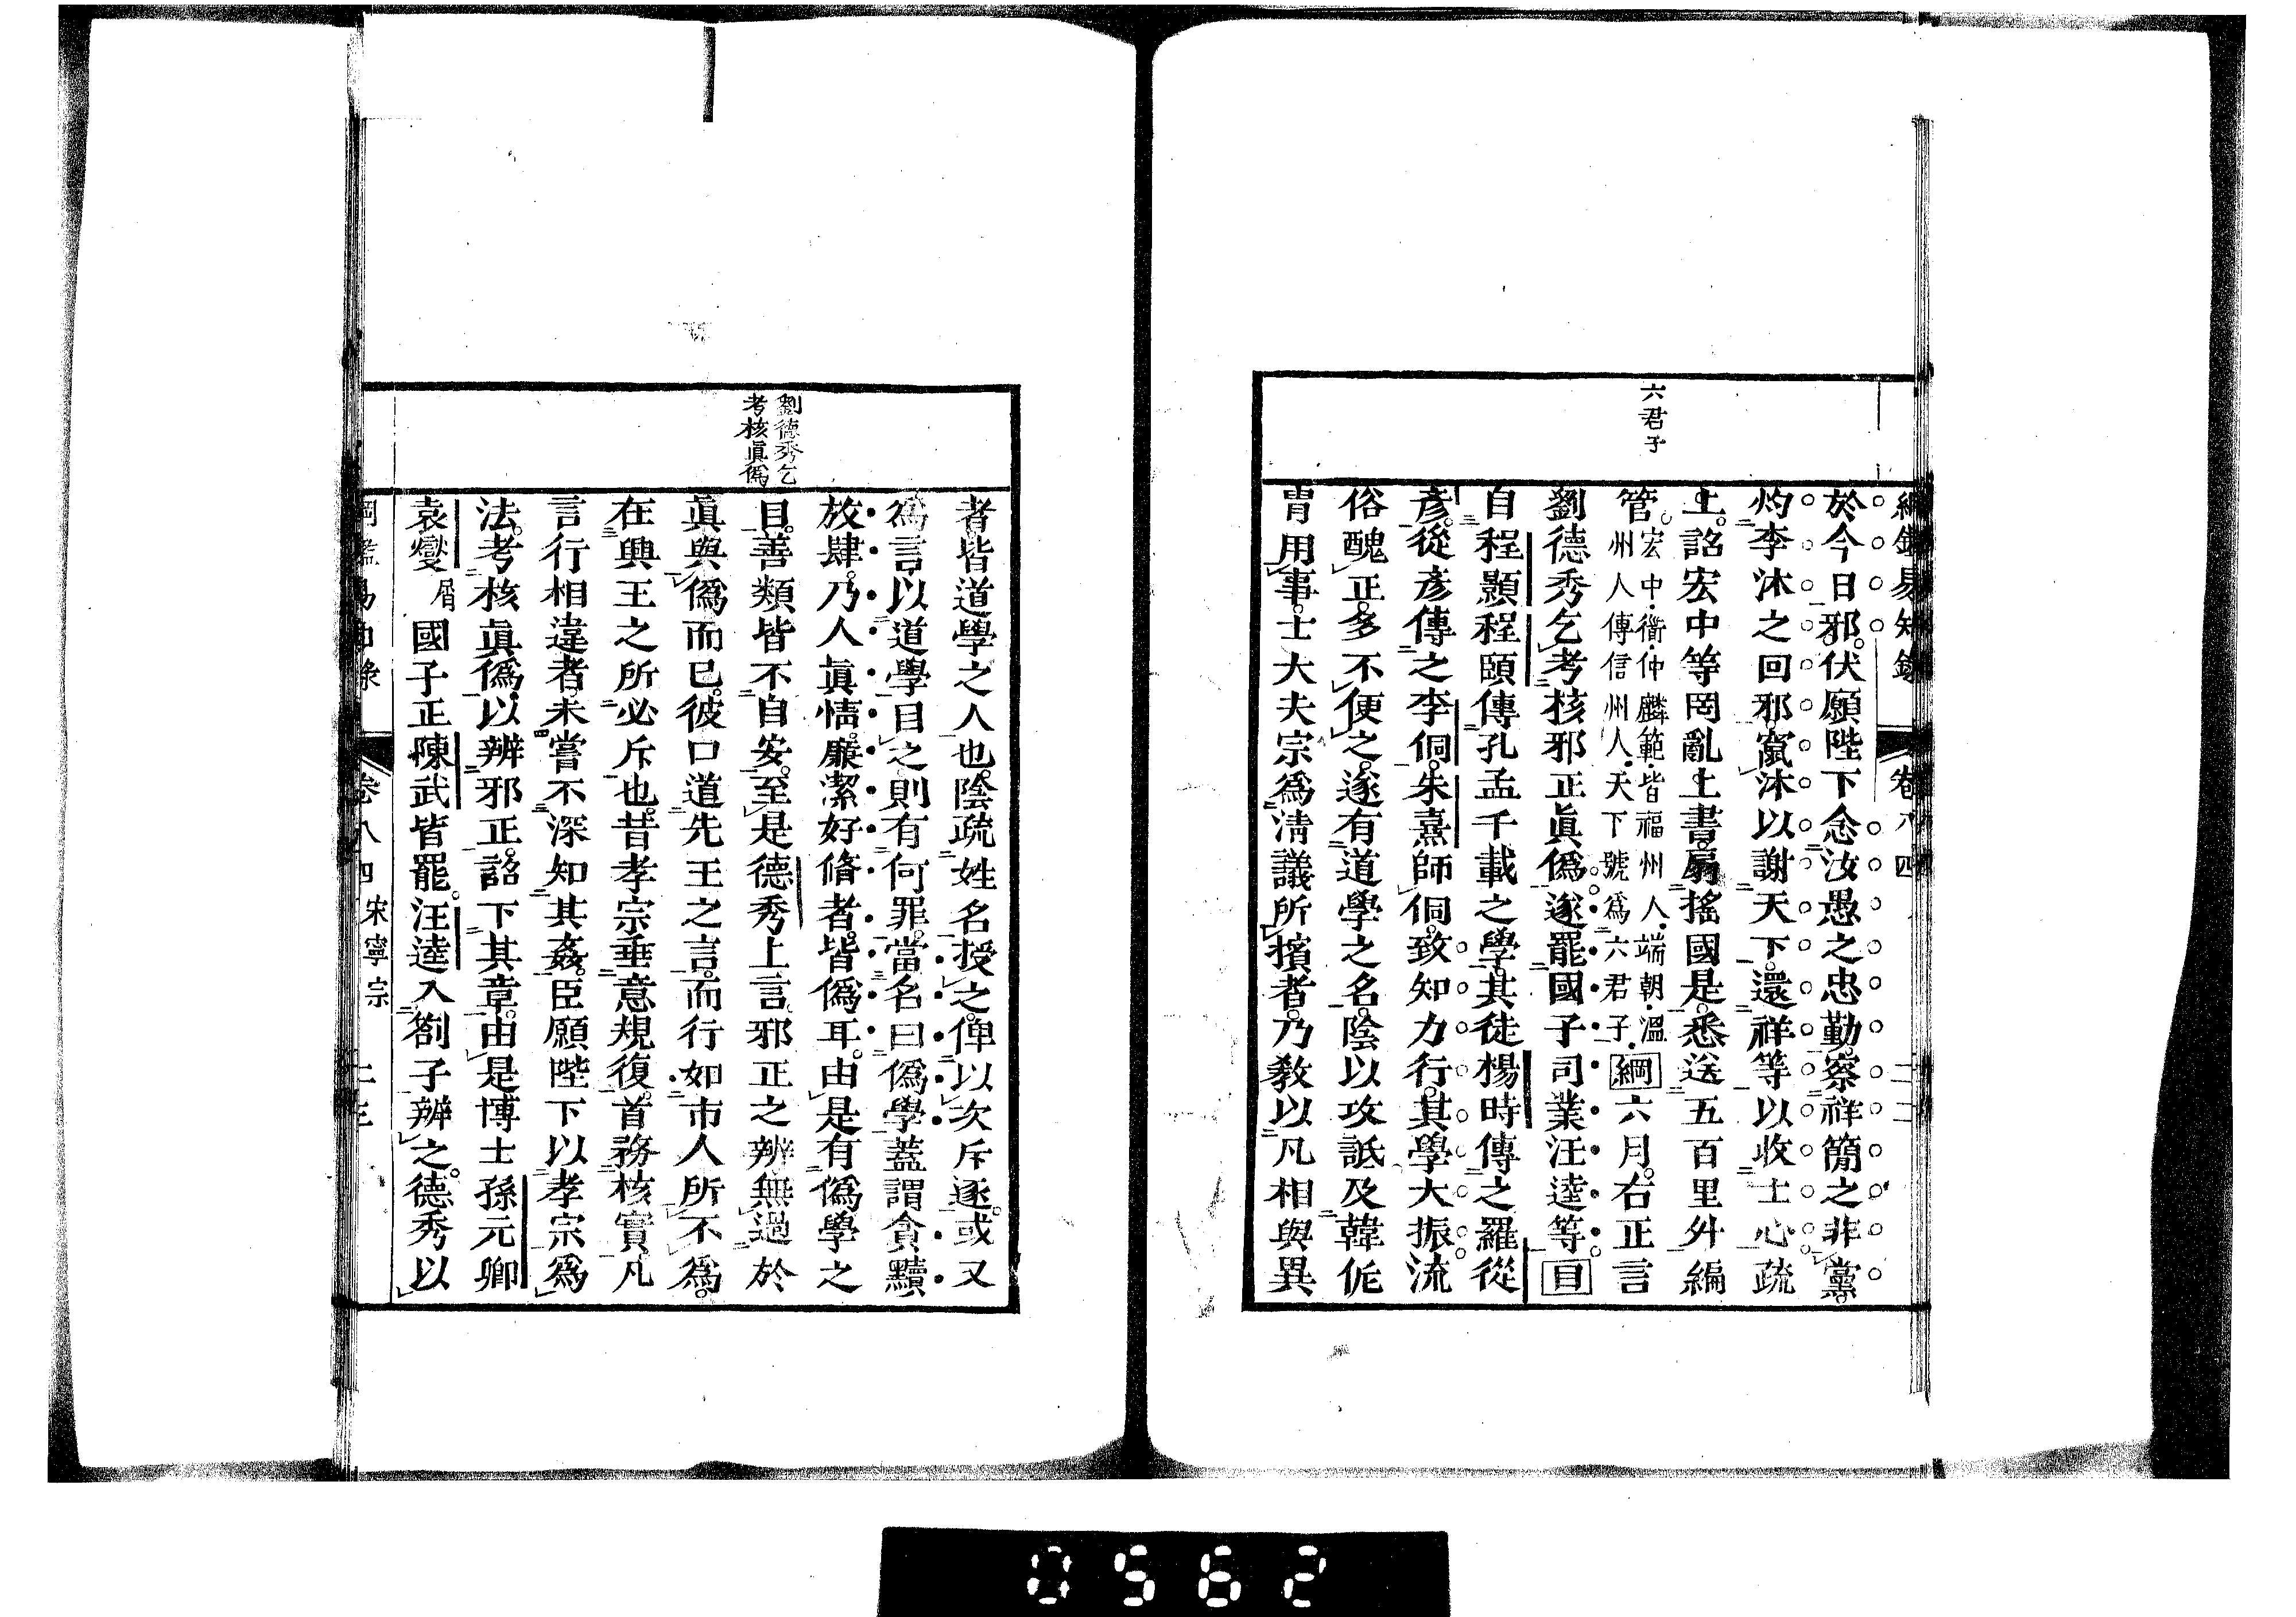 綱鑑易知錄 卷八四 二二
六君子
於今日邪。伏願陛下念汝愚之忠勤。察祥簡之非黨。
灼李沐之回邪。竄沐以謝天下。還祥等以收士心。疏
上。詔宏中等罔亂上書。扇搖國是。悉送五百里外編
管。宏中。衜。仲麟。範。皆福州人。端朝。溫
州人。傳。信州人。天下號爲六君子。綱六月。右正言
劉德秀乞考核邪正眞僞。遂罷國子司業汪逵等。目
自程顥程頤傳孔孟千載之學。其徒楊時傳之羅從
彥。從彥傳之李侗。朱熹師侗。致知力行。其學大振。流
俗醜正。多不便之。遂有道學之名。陰以攻詆及韓侂
冑用事。士大夫宗爲淸議所擯者。乃敎以凡相與異
劉德秀乞
考核眞僞
者。皆道學之人也。陰疏姓名授之。俾以次斥逐。或又
爲言。以道學目之。則有何罪。當名曰僞學。蓋謂貪黷
放肆。乃人眞情。廉潔好脩者。皆僞耳。由是有僞學之
目。善類皆不自安。至是德秀上言。邪正之辨無過於
眞與僞而已。彼口道先王之言。而行如市人所不爲。
在興王之所必斥也。昔孝宗垂意規復。首務核實。凡
言行相違者。未嘗不深知其姦。臣願陛下以孝宗爲
法。考核眞僞。以辨邪正。詔下其章。由是博士孫元卿
袁燮屑國子正陳武皆罷。汪逵入劄子辨之。德秀以
綱鑑易知錄 卷八四 宋寧宗 二三
0562